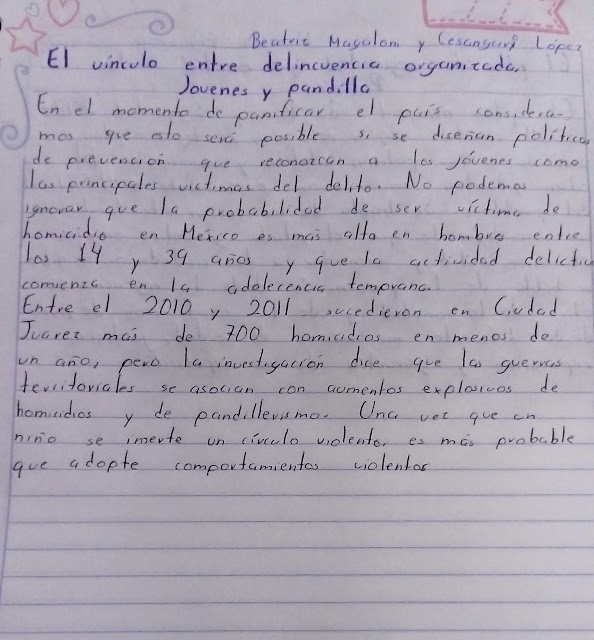 Beatriz Magalom y Cesangari López
El vínculo entre delincuencia organizada.
Jovenes y pandilla
En el momento de panificar el país considera-
mos que esto será posible si se diseñan políticas
de prevención que reconozcan a los jóvenes como
las principales victimas del delito. No podemos
ignorar que la probabilidad de ser víctima de
homicidio en México es mas alta en hombres entre
los 14 y 39 años y que la actividad delictiv
comienza en la adolecencia temprana.
Entre el 2010 y 2011 sucedieron en Ciudad
Juarez más de 700 homicidios en menos de
un año, pero la investigación dice que las guerras
territoriales se asocian con aumentos explosivos de
homicidios y de pandillerismo. Una vez que un
niño se inserte un círculo violento, es más probable
que adopte comportamientos violentos